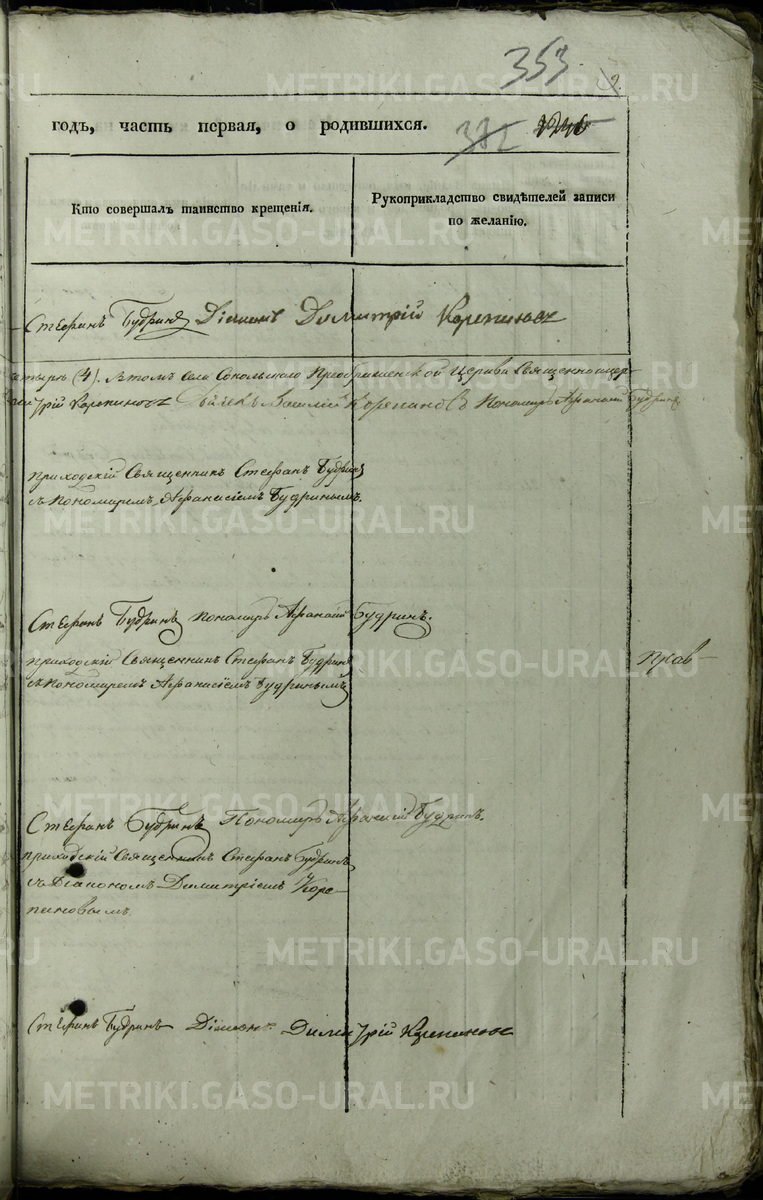 353
2.
годъ, часть первая, о родившихся.
382
Кто совершалъ таинство крещенія.
Рукоприкладство свидѣтелей записи
по желанію.
Стефанъ Будринъ Діаконъ Димитрій Корепановъ
(4). Села Сокольскаго Преображенской Церкви Священно
Корепановъ Василей Корепановъ Пономарь Афанасій Будринъ
приходскій Священникъ Стефанъ Будринъ
съ Пономаремъ Афанасіемъ Будринымъ.
Стефанъ Будринъ Пономарь Афанасій Будринъ.
приходскій Священникъ Стефанъ Будринъ
съ Пономаремъ Афанасіемъ Будринымъ
прав-
Стефанъ Будринъ Пономарь Афанасій Будринъ.
приходскій Священникъ Стефанъ Будринъ
съ Діакономъ Димитріемъ Коре-
пановымъ.
Стефанъ Будринъ Діаконъ Димитрій Корепановъ
METRIKI.GASO-URAL.RU